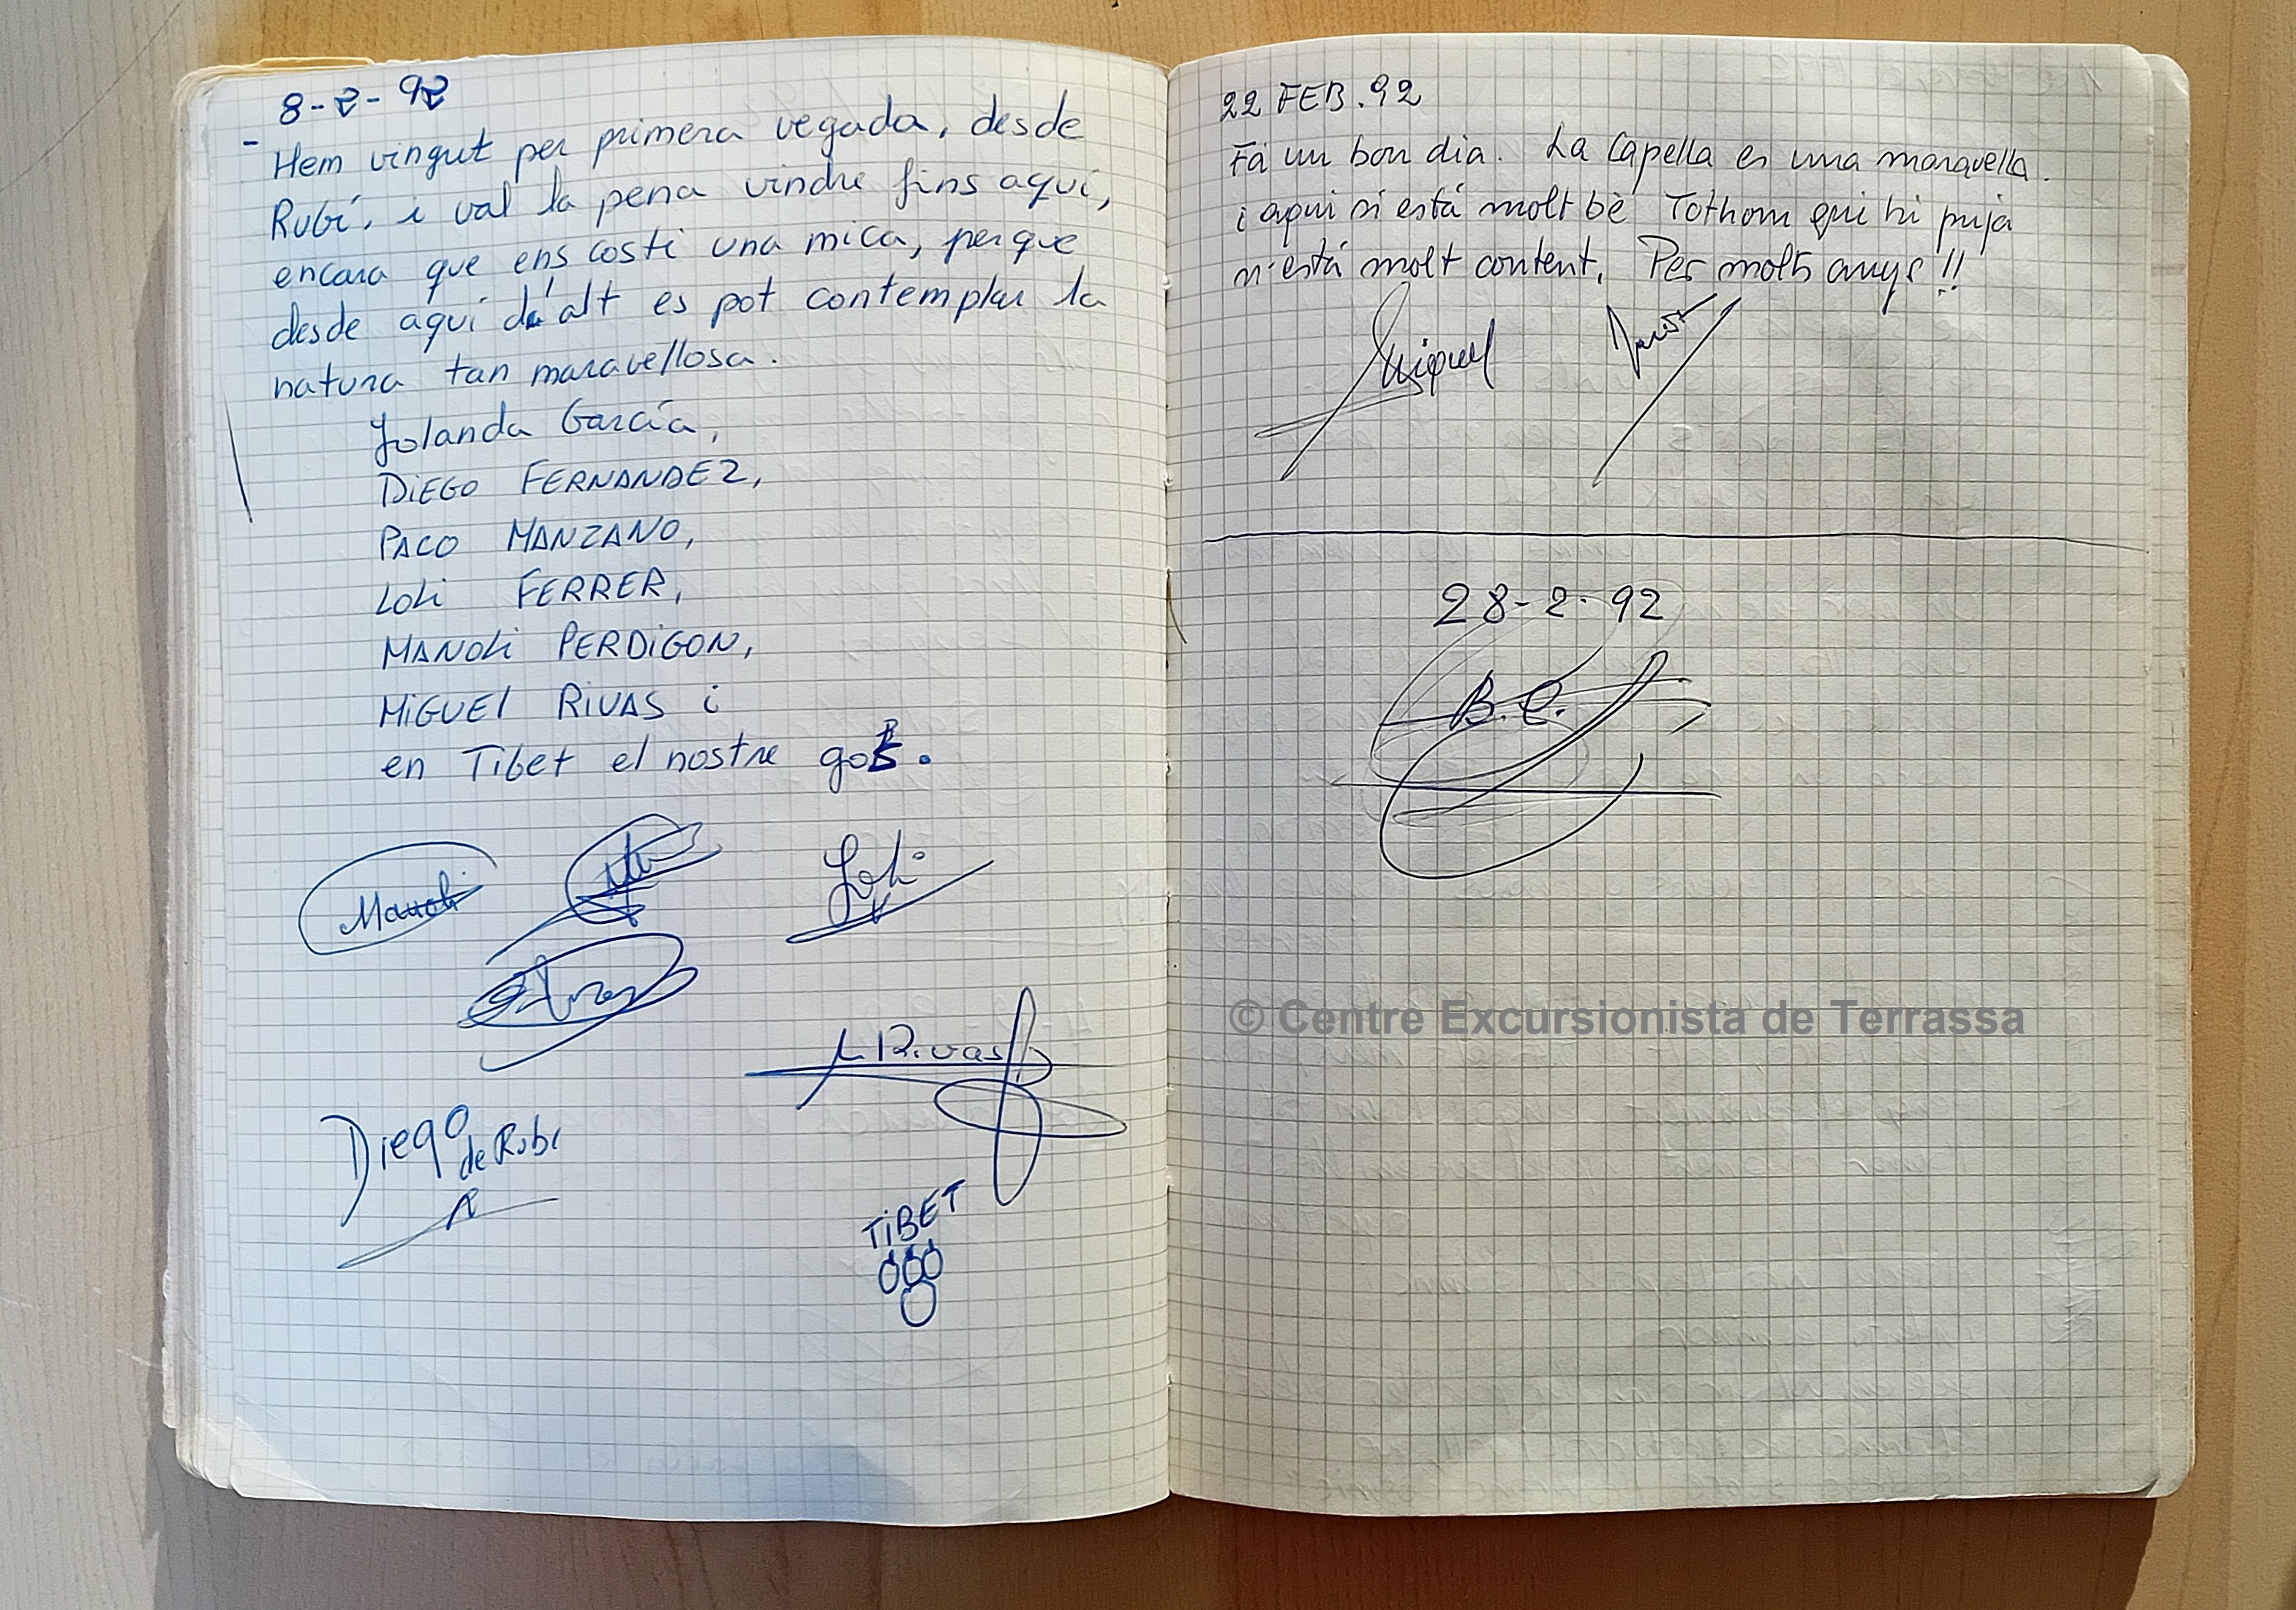 8-2-92
- Hem vingut per primera vegada, desde
Rubí, i val la pena vindre fins aquí,
encara que ens costi una mica, perque
desde aquí d'alt es pot contemplar la
natura tan maravellosa.
Yolanda García,
DIEGO FERNANDEZ,
PACO MANZANO,
LOLI FERRER,
MANOLI PERDIGON,
MIGUEL RIVAS i
en Tibet el nostre gos.
Manoli
Loli
M Rivas
Diego
de Rubí
TIBET
22 FEB. 92
Fá un bon dia. La Capella es una maravella.
i aqui si está molt bè Tothom qui hi pujà
n'està molt content. Per molts anys!!
Miquel
28-2-92
B.C.
© Centre Excursionista de Terrassa